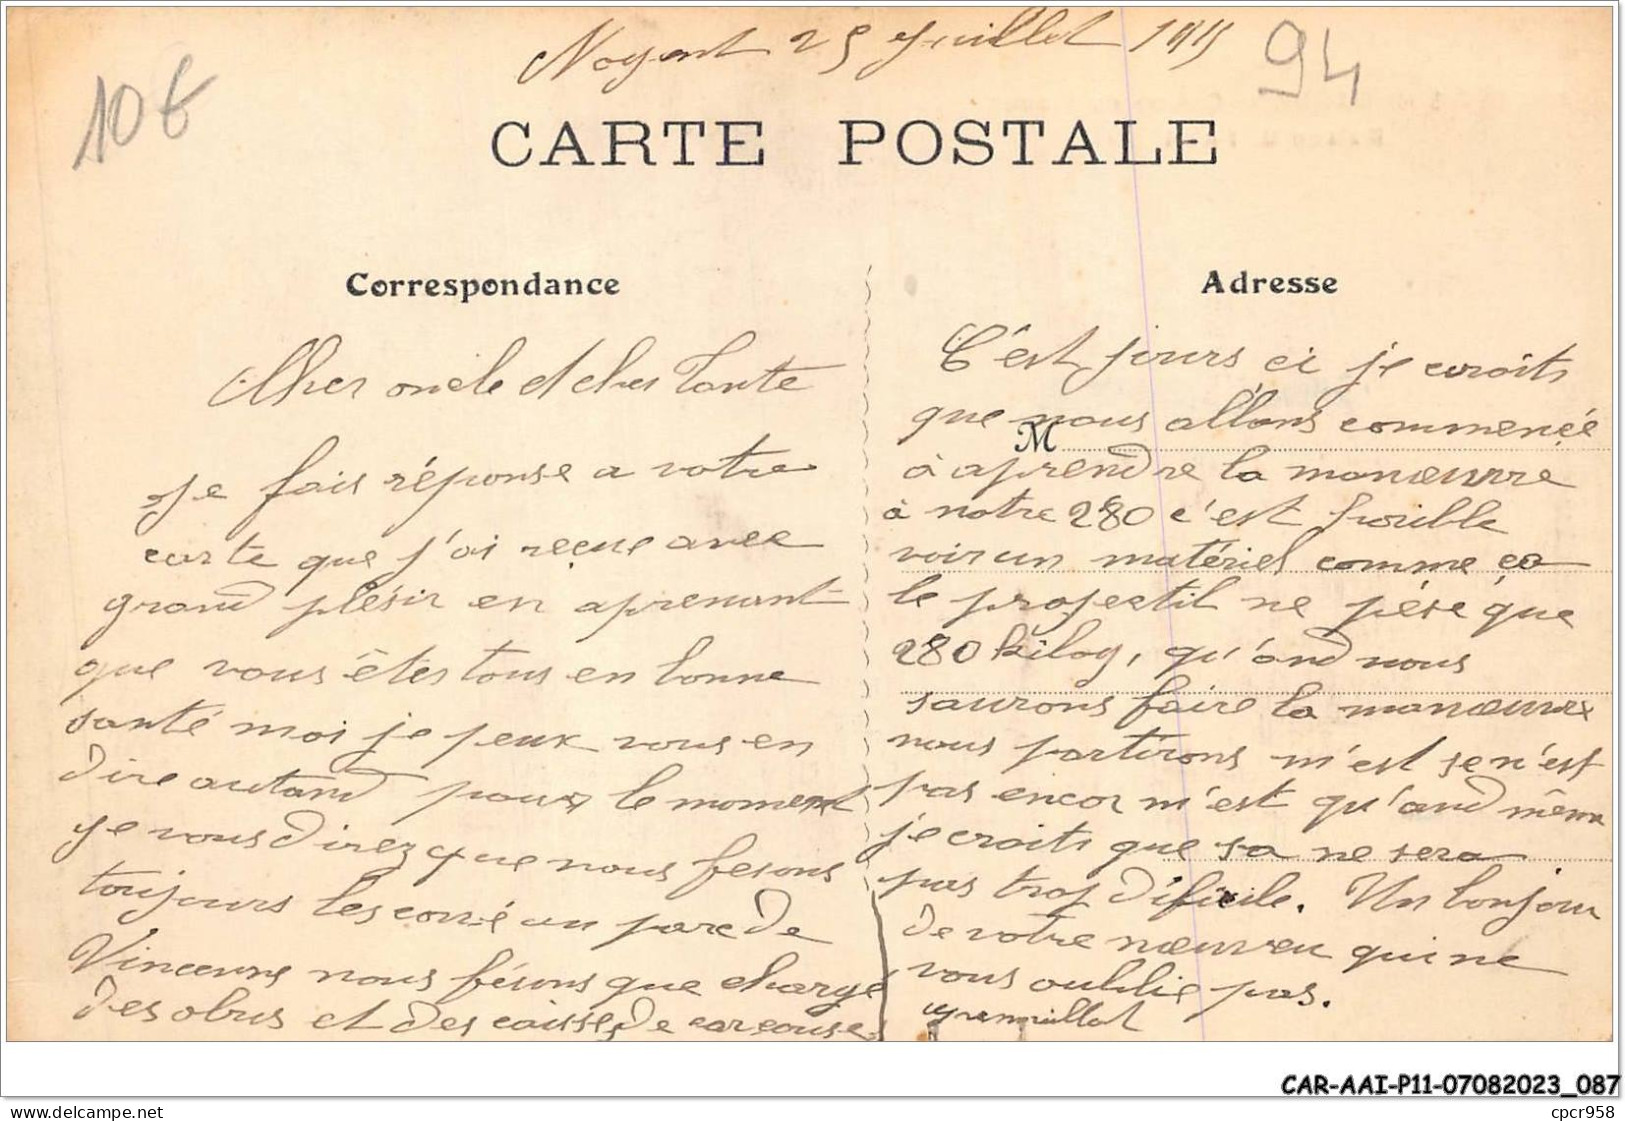 Nogent 25 Juillet 1915
10€
94
CARTE POSTALE
Correspondance
Adresse
Cher oncle et cher Tante
Je fais réponse a votre
carte que j'ai reçue avec
grand plésir en aprenant
que vous êtes tous en bonne
santé moi je peux vous en
dire autand pour le moment
je vous direz que nous fesons
toujours les corvé au parc de
Vincenne nous fésons que chargé
des obus et des caisse de carcouse
C'est jours ci je croits
que nous allons commencée
M
à aprendre la manœuvre
à notre 280 c'est
voir un matériel comme ça
le projectil ne pése que
280 kilog, qu'and nous
saurons faire la manœuvre
nous partirons m'est se n'est
pas encor m'est qu'and même
je croits que sa ne sera
pas trop dificile. Un bonjour
de votre nœuveu qui ne
vous oublie pas.
CAR-AAI-P11-07082023_087
https://www.delcampe.net
cpcr958